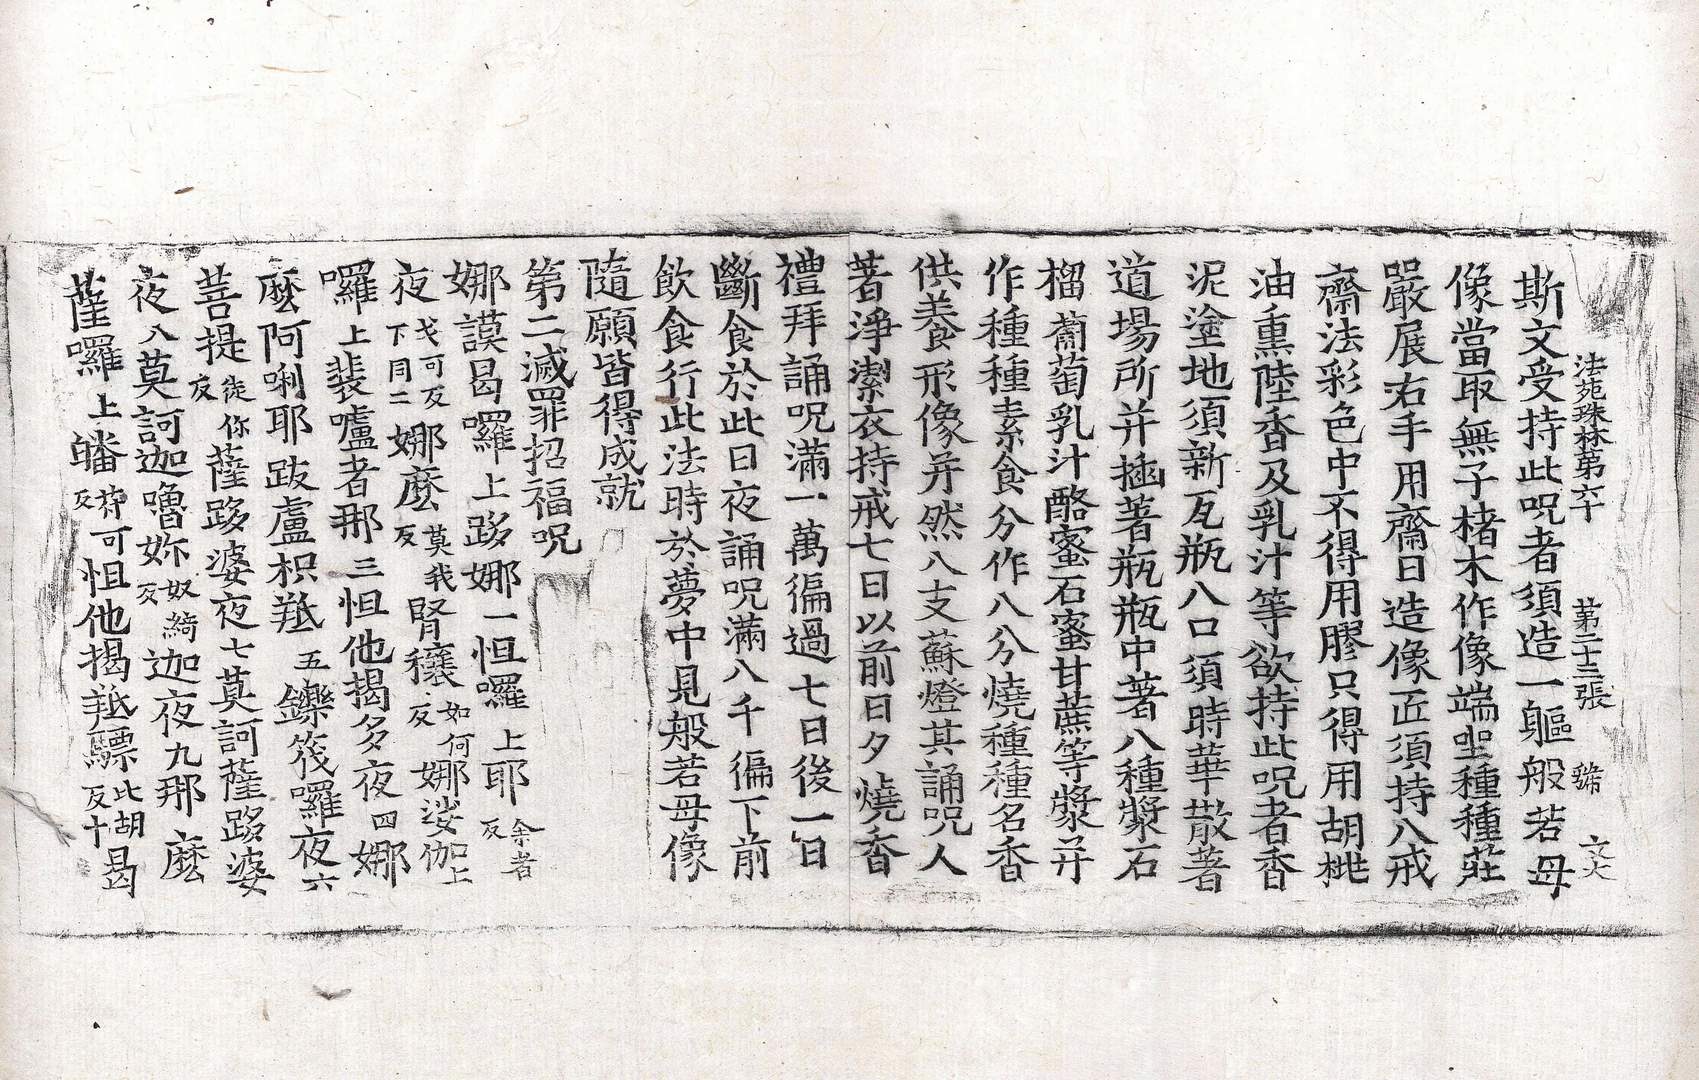 法苑珠林第六十　第二十三張　號　文大
斯文受持此呪者須造一軀般若母
像當取無子楮木作像端坐種種莊
嚴展右手用齋日造像匠須持八戒
齋法彩色中不得用膠只得用胡桃
油熏陸香及乳汁等欲持此呪者香
泥塗地須新瓦瓶八口須時華散著
道場所并揷著瓶瓶中著八種漿石
榴蔔萄乳汁酪蜜石蜜甘蔗等漿并
作種種素食分作八分燒種種名香
供養形像并然八支蘇燈其誦呪人
著淨潔衣持戒七日以前日夕燒香
禮拜誦呪滿一萬徧過七日後一日
斷食於此日夜誦呪滿八千徧下前
飲食行此法時於夢中見般若母像
隨願皆得成就
第二滅罪招福呪
娜謨曷囉上跢娜一怛囉上耶余者反
夜戈可反下同二娜麼莫我反腎穰如何反娜娑伽上
囉上裴嚧者那三怛他揭多夜四娜
麼阿唎耶跋盧枳羝五鑠筏囉夜六
菩提徒你反薩跢婆夜七莫訶薩跢婆
夜八莫訶迦嚕妳奴綺反迦夜九那麼
薩囉上皤菩可反怛他揭羝驃比胡反十曷